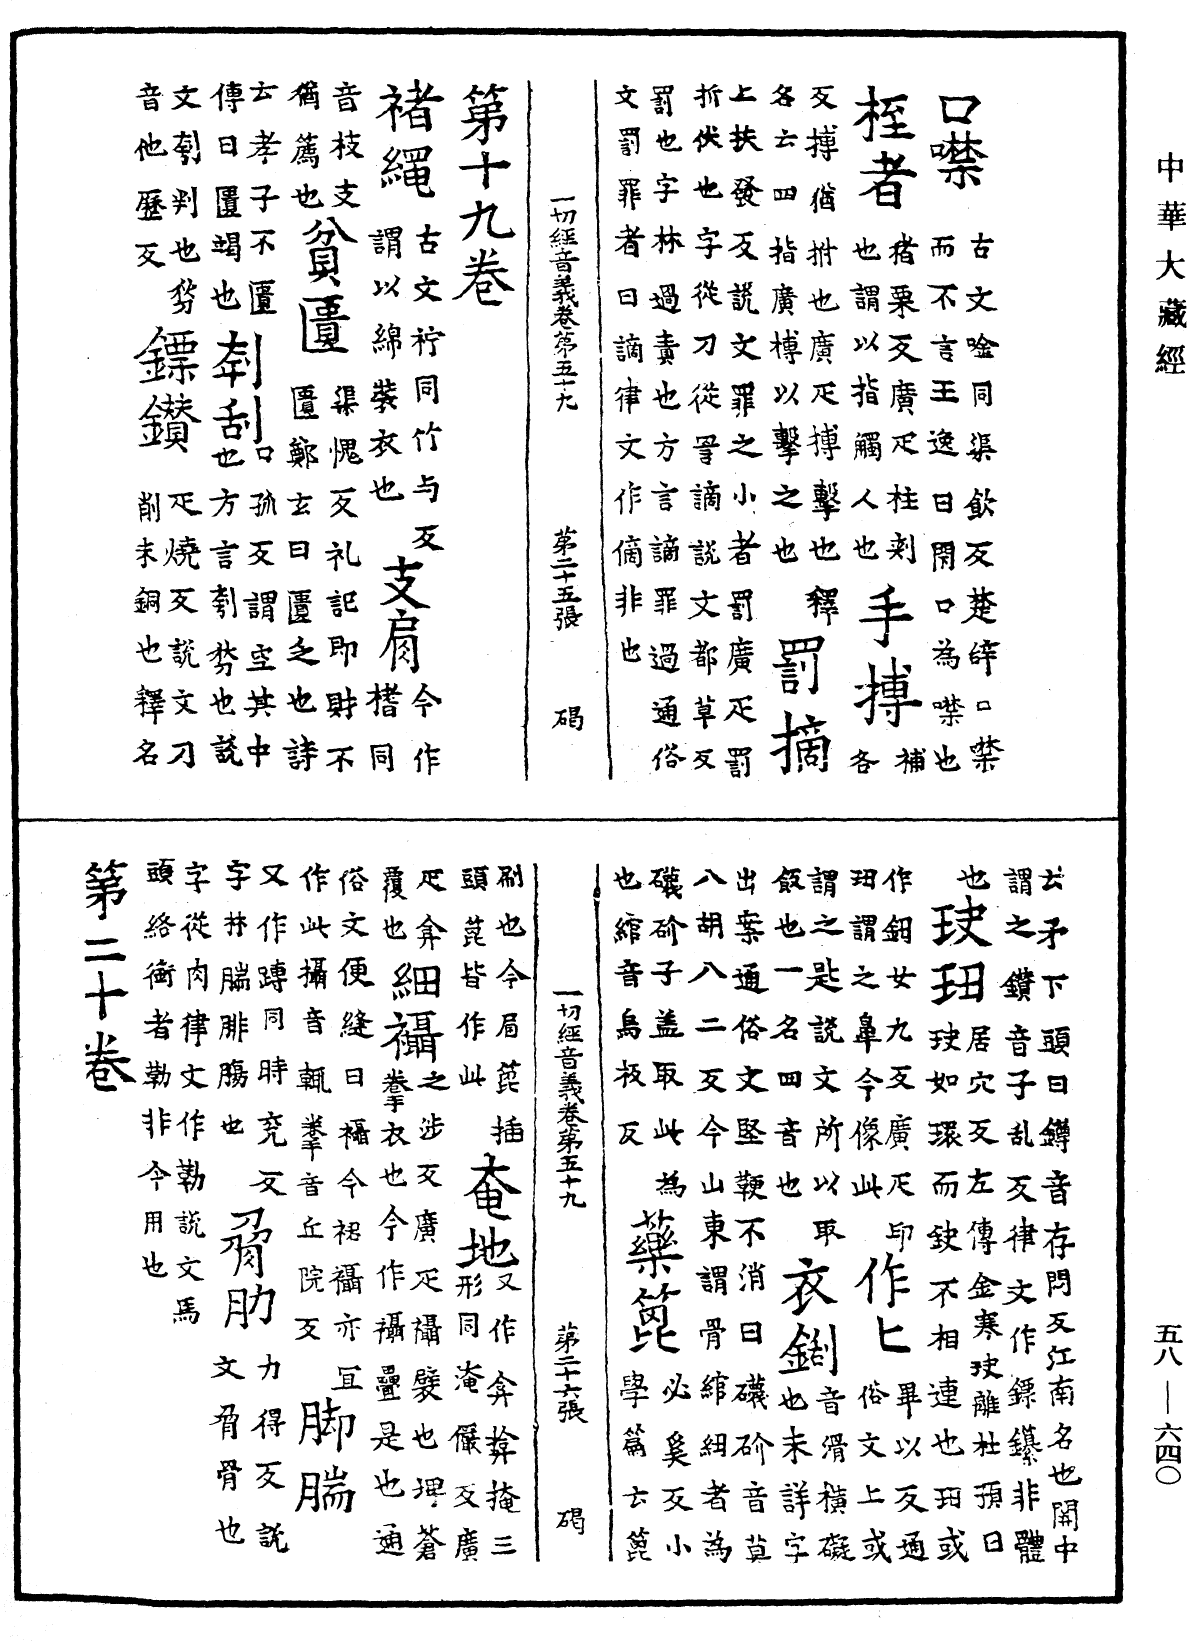 中華大藏經
口噤 古文唫同渠飲反楚辞口噤
而不言王逸曰閇口為噤也
桎者 猪栗反廣疋柱刺
也謂以指觸人也 手搏 補各
反搏猶拊也廣疋搏擊也釋
名云四指廣搏以擊之也 罰摘
上扶發反說文罪之小者罰廣疋罰
折伏也字從刀從詈謫說文都草反
罰也字林過責也方言謫罪過通俗
文罰罪者曰謫律文作僪非也
一切經音義卷第五十九 第二十五張 碣
第十九卷
褚繩 古文柠同竹与反
謂以綿裝衣也 支肩 今作榰同
音枝支
猶薦也 貧匱 渠愧反礼記即財不
匱鄭玄曰匱乏也詩
云孝子不匱
傳曰匱竭也 刳刮 口孤反謂空其中
也方言刳剺也說
文刳判也剺
音他歷反 鏢鑽 疋燒反說文刀
削末銅也釋名
云矛下頭曰鐏音存悶反江南名也関中
謂之鑽音子乱反律文作鏢鑱非體
也 玦玨 居穴反左傳金寒玦離杜預曰
玦如環而鈌不相連也玨或
作鈕女九反廣疋印
玨謂之鼻今像此 作匕 畢以反通
俗文上或
謂之匙說文所以取
飯也一名四音也 衣鎩 音滑橫礙
也未詳字
出案通俗文堅鞕不消曰礣砎音莫
八胡八二反今山東謂骨綰紐者為
礣砎子盖取此為
也綰音烏板反 藥箆 必奚反小
學篇云箆
刷也今眉箆插
頭箆皆作此 奄地 又作弇揜掩三
形同淹儼反廣
疋弇
覆也 細襵 之涉反廣疋襵襞也埤蒼
攀衣也今作襵疊是也通
俗文便縫曰襵今裙襵亦宜
作此攝音輒攣音丘院反 脚腨
又作踹同時兖反
字林腨腓膓也 脅肋 力得反說
文脅骨也
字從肉律文作勒說文馬
頭絡銜者勒非今用也
一切經音義卷第五十九 第二十六張 碣
第二十卷
五八—六四〇